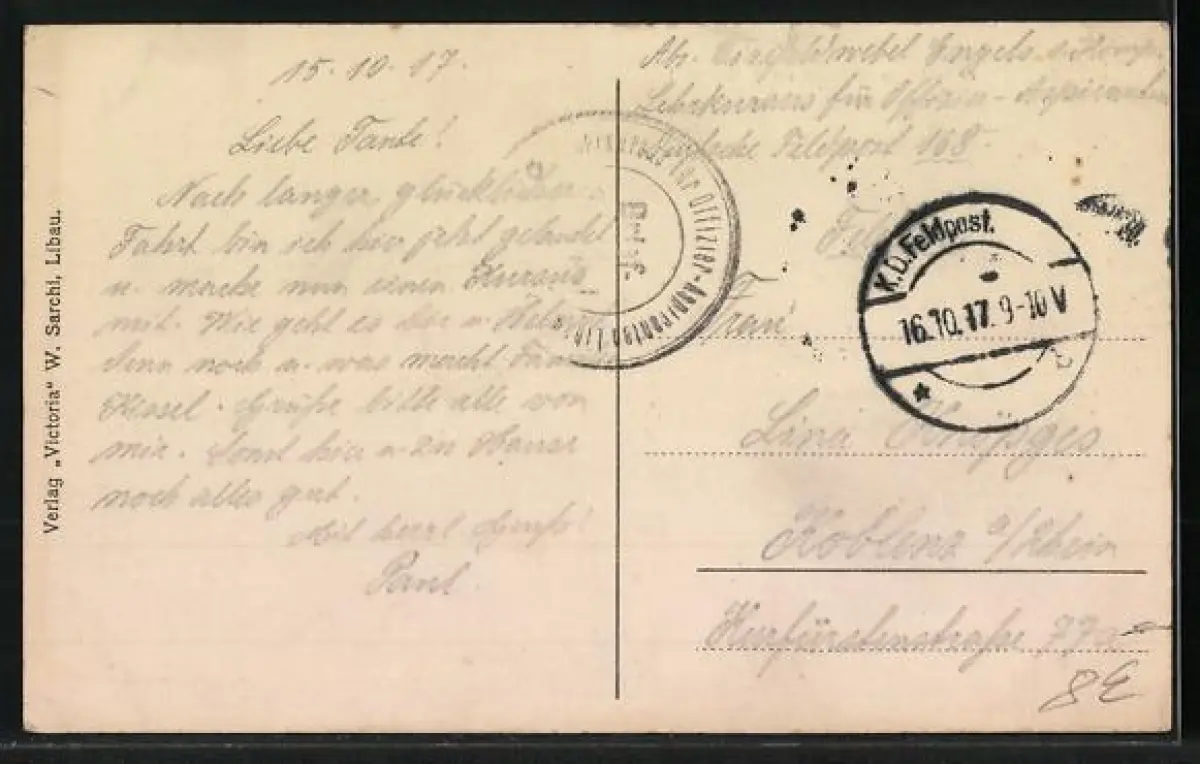 Verlag „Victoria“ W. Sarchi, Libau.
15.10.17.
Liebe Tante!
Nach langer, glücklicher
Fahrt bin ich hier jetzt gelandet
u. mache nun einen Kursus
mit. Wie geht es Dir u.
denn noch u. was macht
Kessel. Grüße bitte alle von
mir. Sonst hier u. zu Hause
noch alles gut.
Mit herzl. Gruß!
Paul.
Abs. Vizefeldwebel Engels
Lehrkursus für Offizier-Aspiranten
Deutsche Feldpost 168.
für Offizier-Aspiranten
K.D.Feldpost.
16.10.17. 9-10 V
Frau
Lina
Koblenz a/Rhein
Kurfürstenstraße 77a
8E